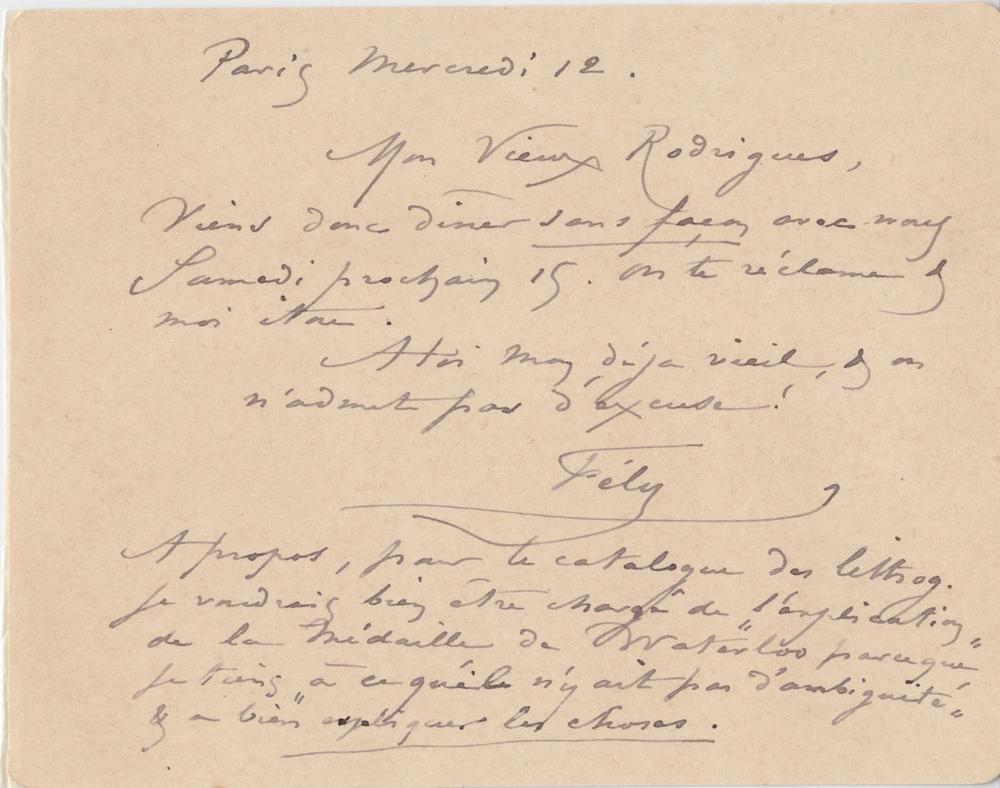 Paris Mercredi 12.
Mon Vieux Rodrigues,
Viens donc diner sans façon avec nous
Samedi prochain 15. on te réclame &
moi itou.
A toi mon déja vieil, & on
n'admet pas d'excuse!
Fély
A propos, pour le catalogue des lithog.
je voudrais bien être chargé de "l'explication"
de la Médaille de Waterloo parceque
je tiens "à ce qu'il n'y ait pas d'ambiguité"
& a bien expliquer les choses.